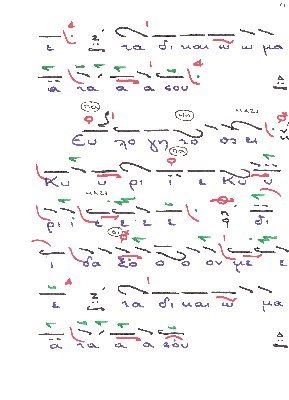 ε τα δι και ω ω μα
α τα α α σου
Ευ λο γη το ος ει
Κυ υ ρι ι ε Κυ υ
ρι ι ε ε ε ε δι
ι δα ξο ο ο ον με ε
ε τα δι και ω μα
α τα α α σου